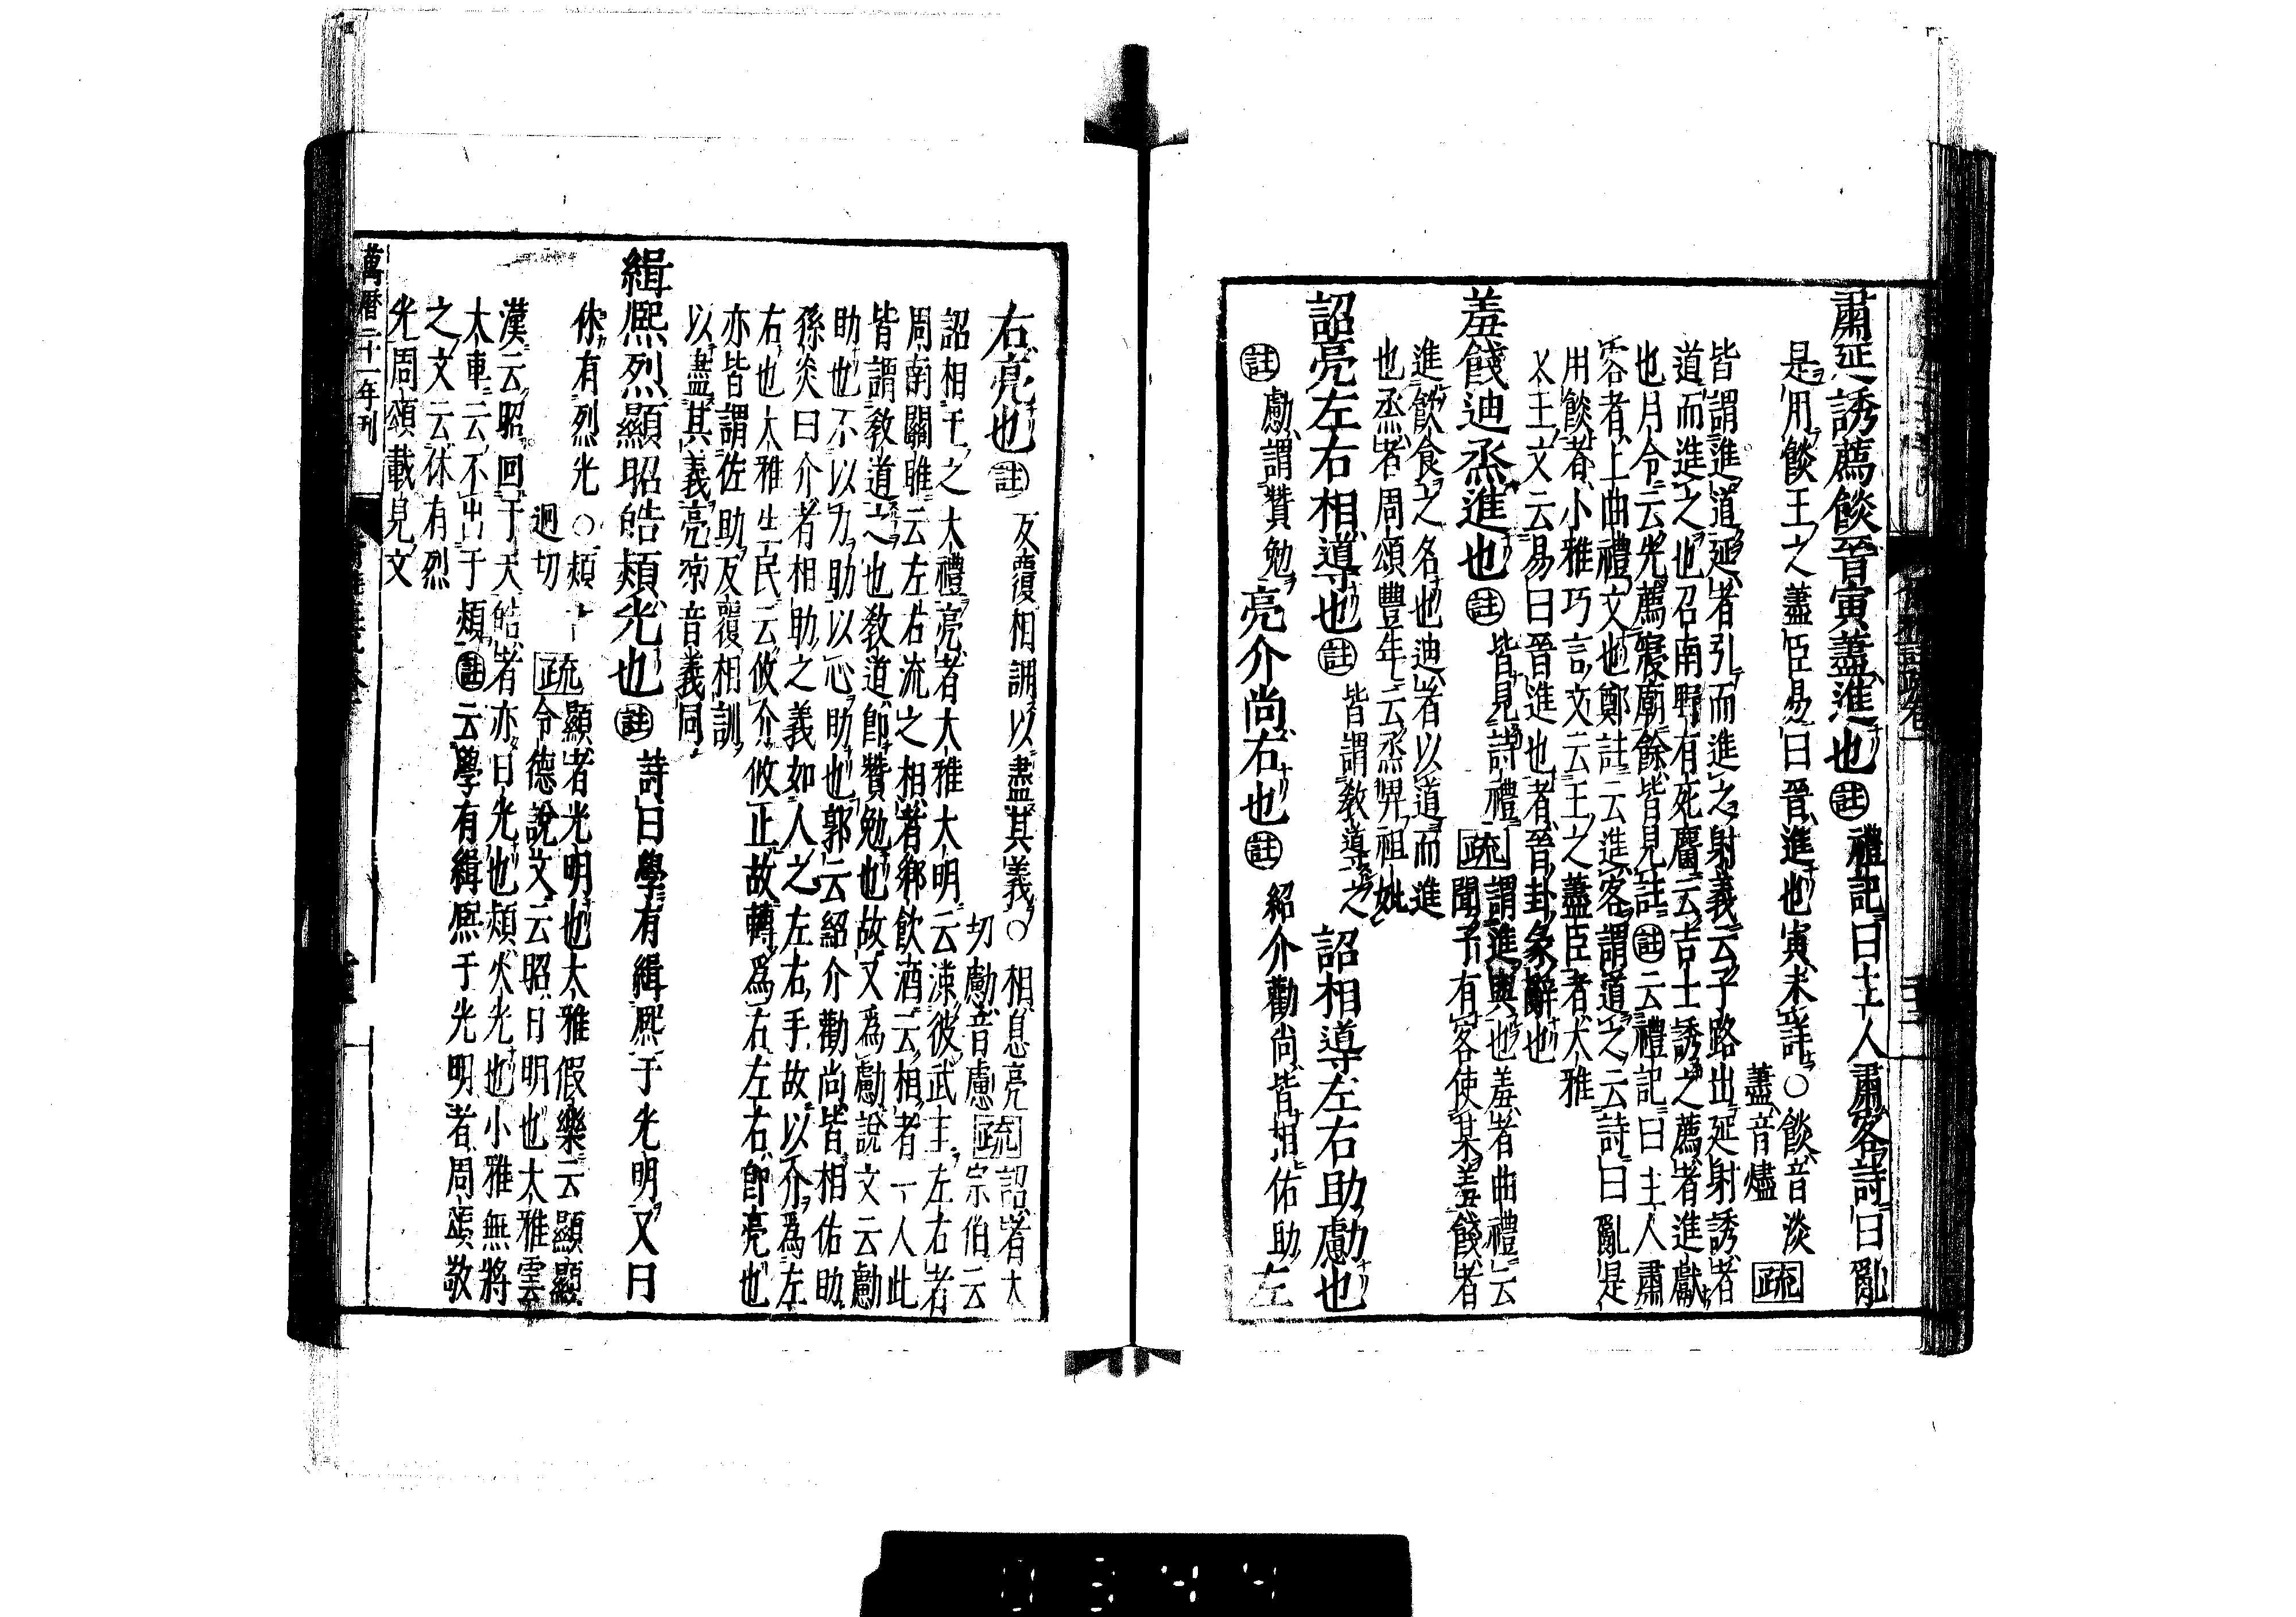 肅延誘薦餤晉寅藎進也註禮記曰主人肅客詩曰亂
是用餤王之藎臣易曰晉進也寅未詳○餤音淡
藎音燼
疏
皆謂進道延者引而進之射義云子路出延射誘者
道而進之也召南野有死麕云吉士誘之薦者進獻
也月令云先薦寢廟餘皆見註註云禮記曰主人肅
客者上曲禮文也鄭註云進客謂道之云詩曰亂是
用餤者小雅巧言文云王之藎臣者大雅
文王文云易曰晉進也者晉卦彖辭也
羞餞迪烝進也註皆見詩禮
疏
謂進與也羞者曲禮云
聞子有客使某羞餞者
進飲食之名也迪者以道而進
也烝者周頌豐年云烝畀祖妣
詔亮左右相導也註皆謂教導之詔相導左右助勴也
註勴謂贊勉亮介尚右也註紹介勸尚皆相佑助左
右亮也註反覆相訓以盡其義○相息亮
切勴音慮
疏
詔者大
宗伯云
詔相王之大禮亮者大雅大明云涼彼武王左右者
周南關雎云左右流之相者鄉飲酒云相者一人此
皆謂教道之也教道即贊勉也故又為勴說文云勴
助也不以力助以心助也郭云紹介勸尚皆相佑助
孫炎曰介者相助之義如人之左右手故以介為左
右也大雅生民云攸介攸止故轉為右左右即亮也
亦皆謂佐助反覆相訓
以盡其義亮涼音義同
緝熙烈顯昭皓熲光也註詩曰學有緝熙于光明又曰
休有烈光○熲
迥切
疏
顯者光明也大雅假樂云顯顯
令德說文云昭日明也大雅雲
漢云昭回于天皓者亦日光也熲火光也小雅無將
大車云不出于熲註云學有緝熙于光明者周頌敬
之文云休有烈
光周頌載見文
萬曆二十一年刊